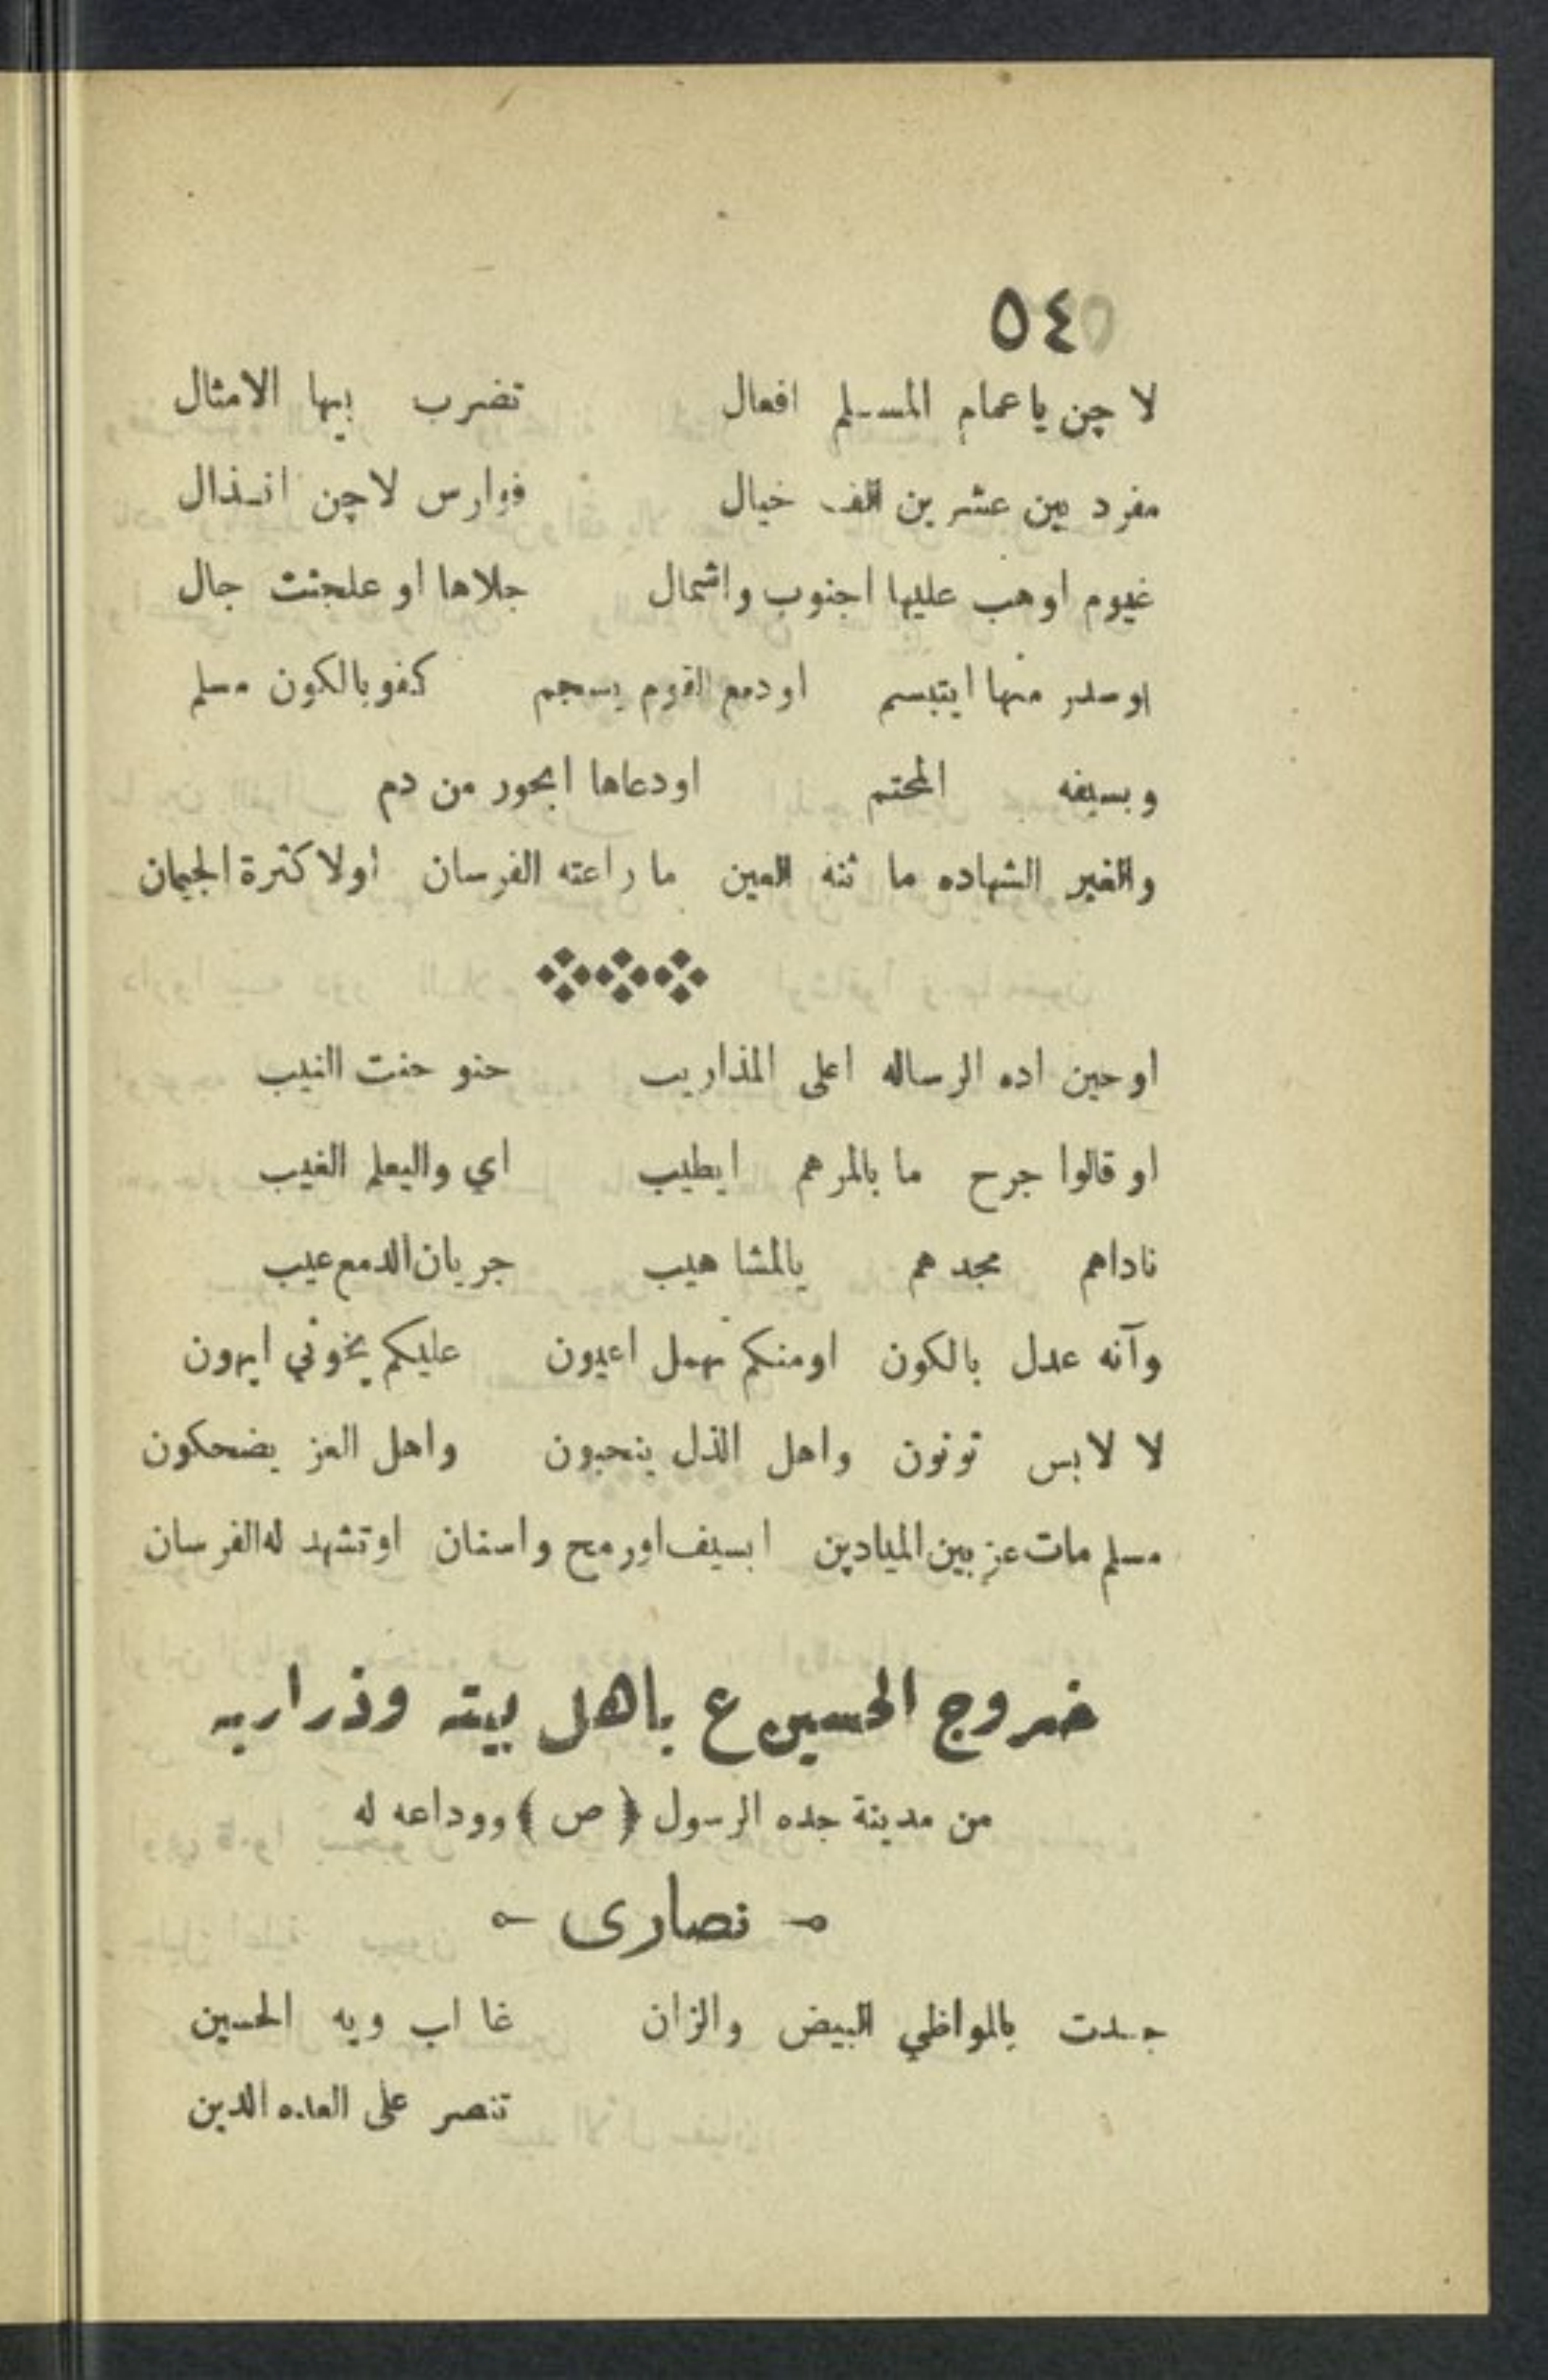 ٥٤
لا چن ياعمام المسلم افعال تضرب بيها الامثال
مفرد بين عشرين الف خيال فوارس لاچن انذال
غيوم اوهب عليها اجنوب واشمال جلاها او علجنت جال
اوسدر منها ايتبسم اودمع القوم يسجم كفو بالكون مسلم
وبسيفه المحتم اودعاها ابحور من دم
والغير الشهاده ما ثنه العين ما راعته الفرسان اولا كثرة الجيمان
اوحين اده الرساله اعلى المذاريب حنو حنت النيب
او قالوا جرح ما بالمرهم ايطيب اي واليعلم الغيب
ناداهم مجدهم يالمشاهيب جريان الدمع عيب
وآنه عدل بالكون اومنكم تهمل اعيون عليكم يخوتي ايهون
لا لابس تونون واهل الذل ينحبون واهل العز يضحكون
مسلم مات عز بين الميادين ابسيف اورمح واسنان اوتشهد له الفرسان
خروج الحسين ع باهل بيته وذراريه
من مدينة جده الرسول ﴿ ص ﴾ ووداعه له
نصارى
جدت بالمواظي البيض والزان غا اب ويه الحسين
تنصر على العده الدين